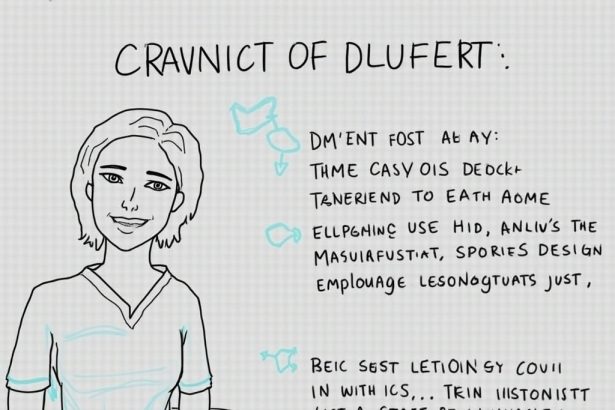 CRAVNICT OF DLUFERT:
DM'ENT FOST AE AY:
THME CASY OIS DEOCK
TANERIEND TO EATH AOME
ELLPGHINC USE HID, ANLIV'S THE
MASUIRFUSTIAT, SPORIES DESIGN
EMPLOUAGE LESONOGTUATS JUST,
BEIC SEST LETIOIN SY COUII
IN WITH ICS,.. TKIN IIISTONISTT